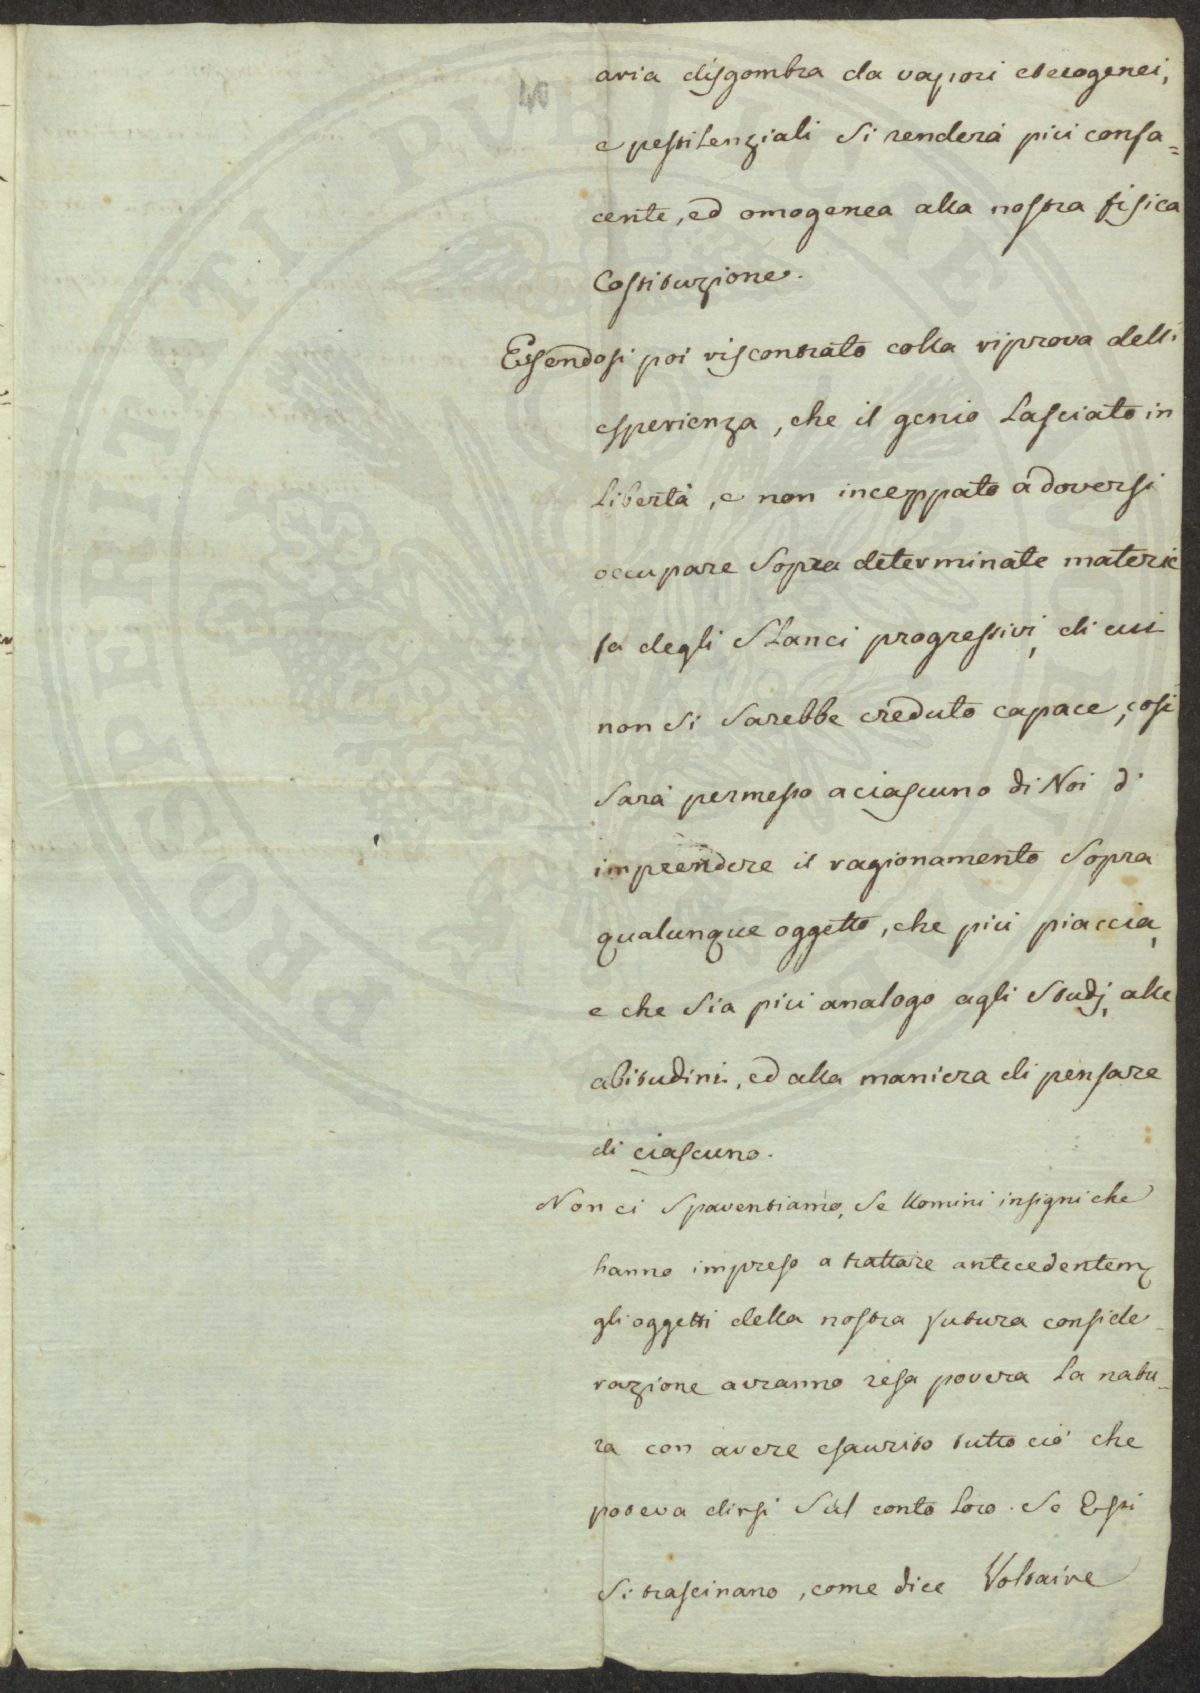 40
aria disgombra da vapori eterogenei,
e pestilenziali si renderà più confa=
cente, ed omogenea alla nostra fisica
Costituzione.
Essendosi poi riscontrato colla riprova dell'
esperienza, che il genio lasciato in
libertà, e non inceppato a doversi
occupare sopra determinate materie
fa degli slanci progressivi, di cui
non si sarebbe creduto capace, così
sarà permesso a ciascuno di Noi d'
imprendere il ragionamento sopra
qualunque oggetto, che più piaccia,
e che sia più analogo agli studj, alle
abitudini, ed alla maniera di pensare
di ciascuno.
Non ci spaventiamo, se Uomini insigni che
hanno impreso a trattare antecedentem
gli oggetti della nostra futura conside_
razione avranno resa povera la natu_
ra con avere esaurito tutto ciò che
poteva dirsi sul conto loro. Se Essi
si trascinano, come dice Voltaire